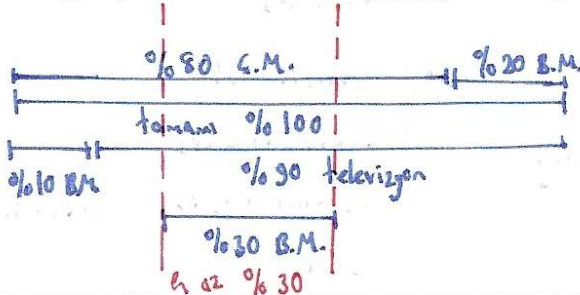 %80 Ç.M. %20 B.M.
tamamı %100
%10 BM. %90 televizyon
%30 B.M.
en az %30